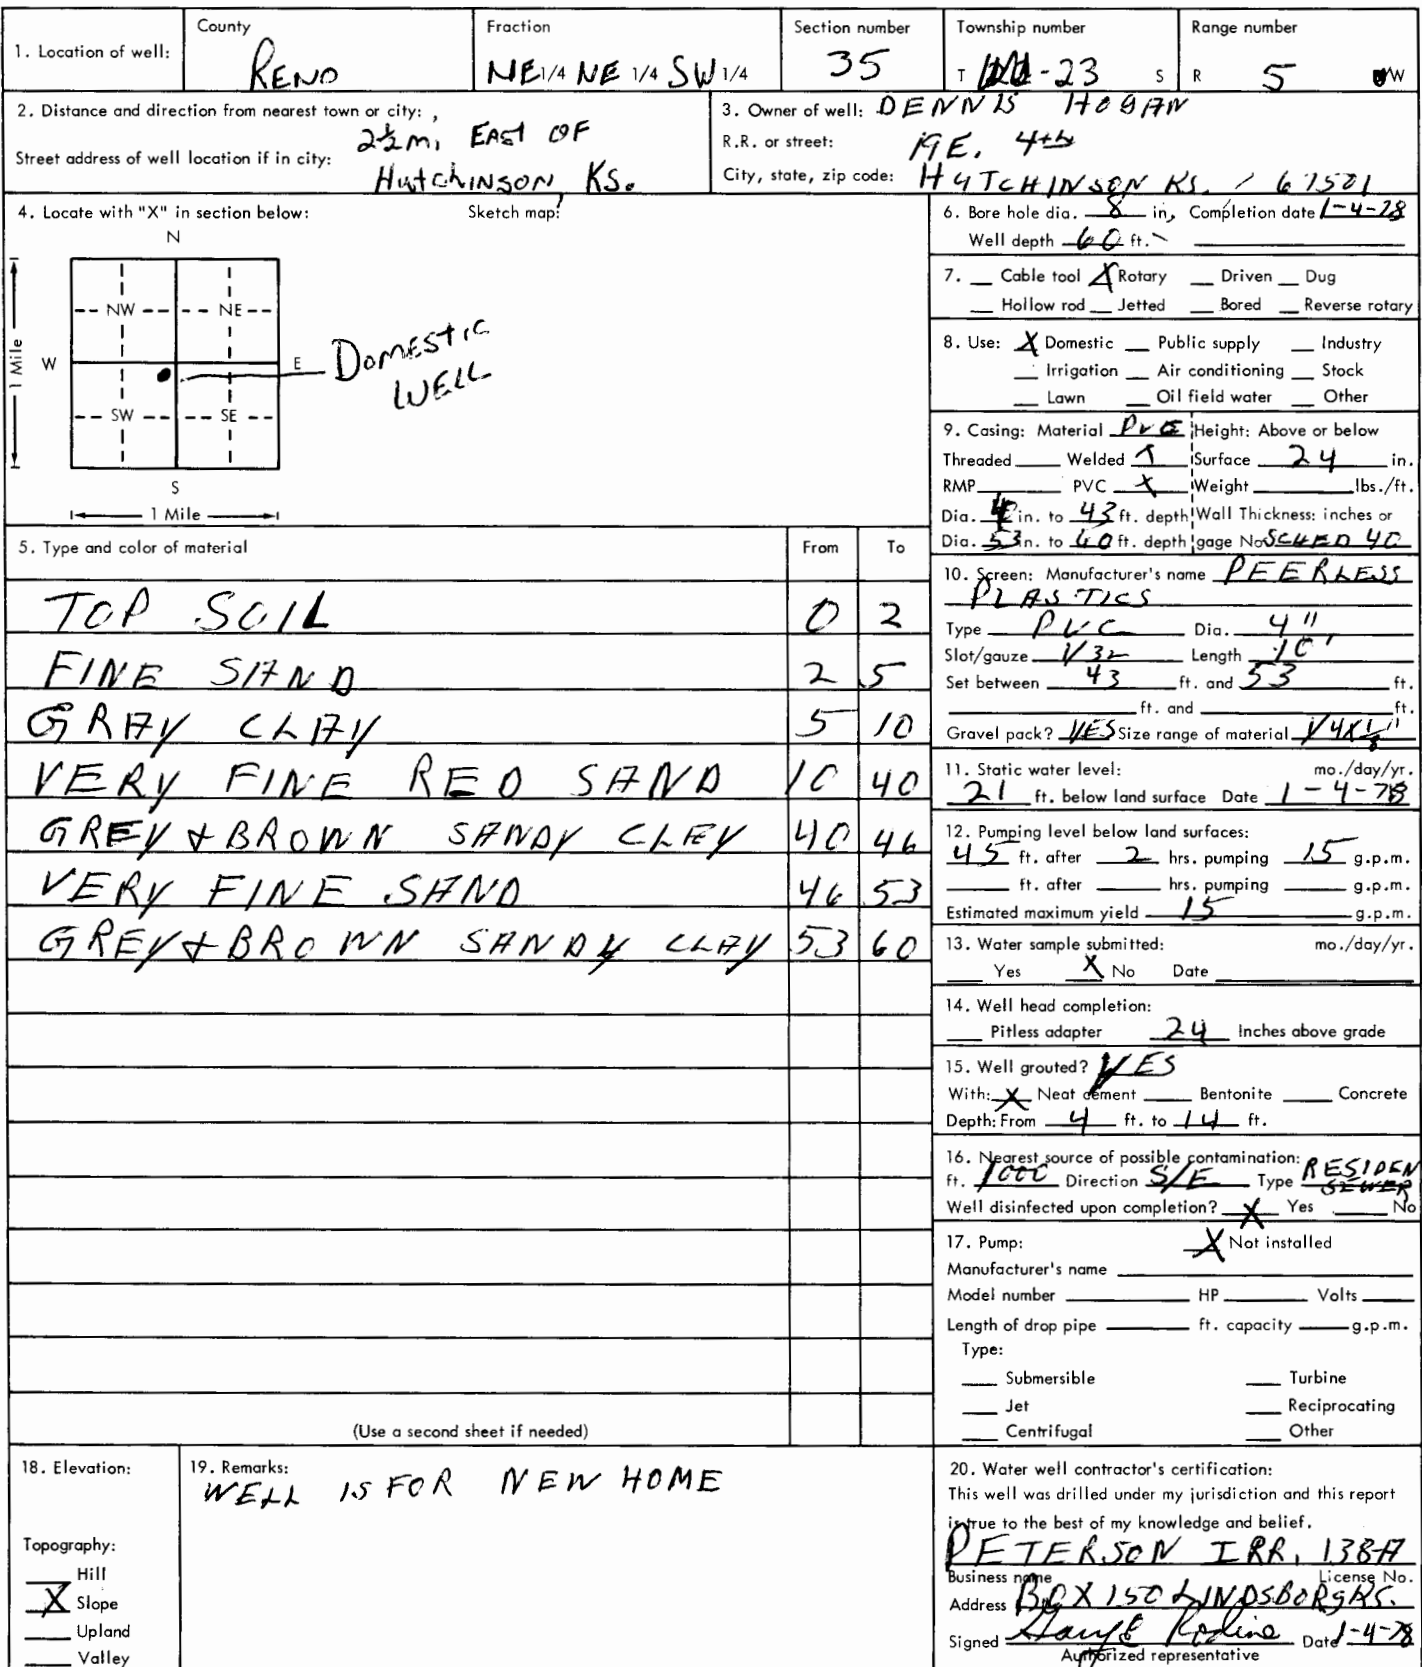 1. Location of well: County RENO Fraction NE 1/4 NE 1/4 SW 1/4 Section number 35 Township number T -23 S Range number R 5 W
2. Distance and direction from nearest town or city: 2½ mi EAST OF
Street address of well location if in city: HutchINSON, KS.
3. Owner of well: DENNIS HOGAN
R.R. or street: 19 E. 4th
City, state, zip code: HUTCHINSON KS. / 67501
4. Locate with "X" in section below: Sketch map:
N
NW NE
W E
SW SE
S
1 Mile
1 Mile
DOMESTIC
WELL
5. Type and color of material From To
TOP SOIL 0 2
FINE SAND 2 5
GRAY CLAY 5 10
VERY FINE RED SAND 10 40
GREY & BROWN SANDY CLAY 40 46
VERY FINE SAND 46 53
GREY & BROWN SANDY CLAY 53 60
(Use a second sheet if needed)
6. Bore hole dia. 8 in. Completion date 1-4-78
Well depth 60 ft.
7. Cable tool X Rotary Driven Dug
Hollow rod Jetted Bored Reverse rotary
8. Use: X Domestic Public supply Industry
Irrigation Air conditioning Stock
Lawn Oil field water Other
9. Casing: Material PVC Height: Above or below
Threaded Welded Surface 24 in.
RMP PVC X Weight lbs./ft.
Dia. 4 in. to 43 ft. depth Wall Thickness: inches or
Dia. 53 in. to 60 ft. depth gage No SCHED 40
10. Screen: Manufacturer's name PEERLESS
PLASTICS
Type PVC Dia. 4"
Slot/gauze 1/32 Length 10'
Set between 43 ft. and 53 ft.
ft. and ft.
Gravel pack? YES Size range of material 1/4 X 1/8"
11. Static water level: mo./day/yr.
21 ft. below land surface Date 1-4-78
12. Pumping level below land surfaces:
45 ft. after 2 hrs. pumping 15 g.p.m.
ft. after hrs. pumping g.p.m.
Estimated maximum yield 15 g.p.m.
13. Water sample submitted: mo./day/yr.
Yes X No Date
14. Well head completion:
Pitless adapter 24 Inches above grade
15. Well grouted? YES
With: X Neat cement Bentonite Concrete
Depth: From 4 ft. to 14 ft.
16. Nearest source of possible contamination:
ft. 1000 Direction S/E Type RESIDEN
SEWER
Well disinfected upon completion? X Yes No
17. Pump: X Not installed
Manufacturer's name
Model number HP Volts
Length of drop pipe ft. capacity g.p.m.
Type:
Submersible Turbine
Jet Reciprocating
Centrifugal Other
18. Elevation:
Topography:
Hill
X Slope
Upland
Valley
19. Remarks:
WELL IS FOR NEW HOME
20. Water well contractor's certification:
This well was drilled under my jurisdiction and this report
is true to the best of my knowledge and belief.
PETERSON IRR. 138-A
Business name License No.
Address BOX 150 LINDSBORG KS.
Signed Date 1-4-78
Authorized representative